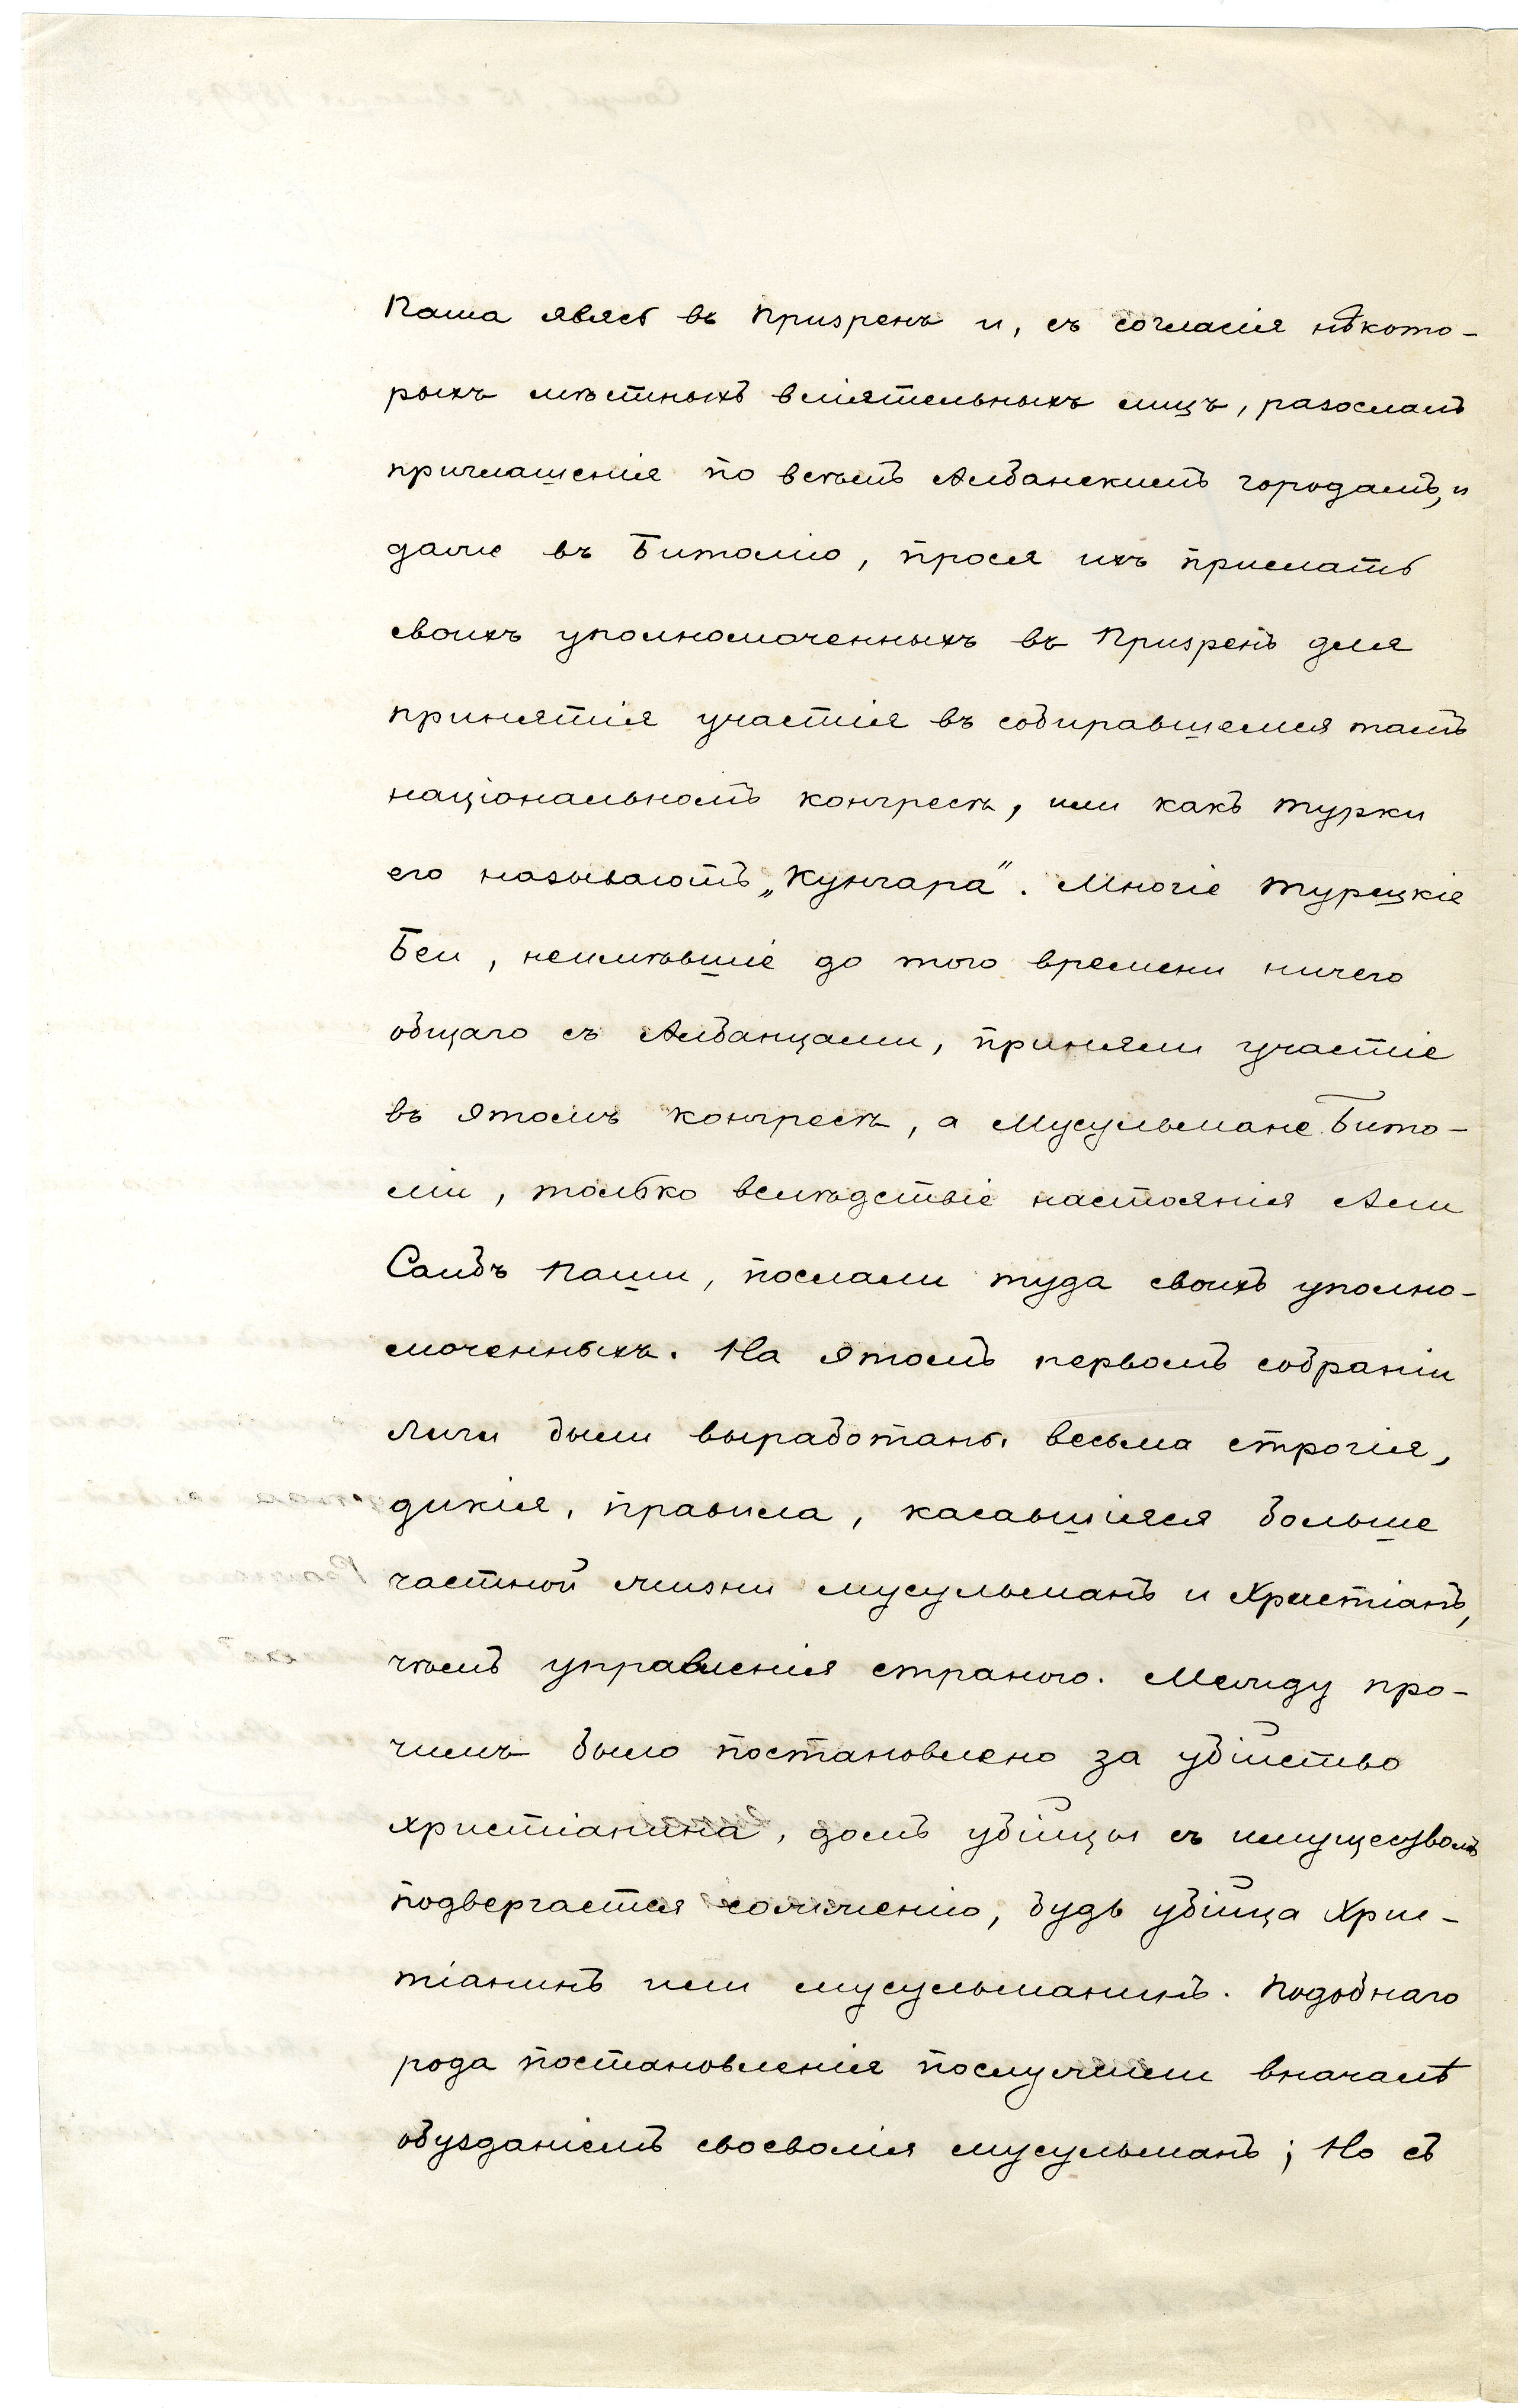 Паша явясь въ Призренъ и, съ согласія нѣкото-
рыхъ мѣстныхъ вліятельныхъ лицъ, разослалъ
приглашенія по всѣмъ Албанскимъ городамъ, и
даже въ Битолію, прося ихъ прислать
своихъ уполномоченныхъ въ Призренъ для
принятія участія въ собиравшемся тамъ
національномъ конгресѣ, или какъ турки
его называютъ „Кунгара". Многіе турецкіе
Беи, неимѣвшіе до того времени ничего
общаго съ Албанцами, приняли участіе
въ этомъ конгресѣ, а Мусульмане Бито-
ліи, только вслѣдствіе настоянія Али
Саибъ Паши, послали туда своихъ уполно-
моченныхъ. На этомъ первомъ собраніи
Лиги были выработаны весьма строгія,
дикія, правила, касавшіяся больше
частной жизни мусульманъ и Христіанъ,
чѣмъ управленія страною. Между про-
чимъ было постановлено за убійство
христіанина, домъ убійцы съ имуществомъ
подвергается сожженію, будь убійца Хрис-
тіанинъ или мусульманинъ. Подобнаго
рода постановленія послужили вначалѣ
обузданіемъ своеволія мусульманъ; Но съ